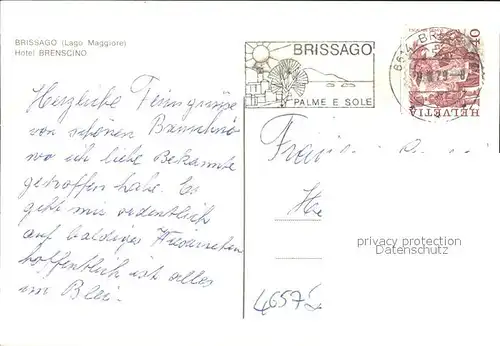 BRISSAGO (Lago Maggiore)
Hotel BRENSCINO
BRISSAGO
PALME E SOLE
HELVETIA
40
Herzliche Feriengrüsse
vom schönen Brenscino
wo ich liebe Bekannte
getroffen habe. Es
geht mir ordentlich
auf baldiges Wiedersehen
hoffentlich ist alles
im Blei.
privacy protection
Datenschutz
4657